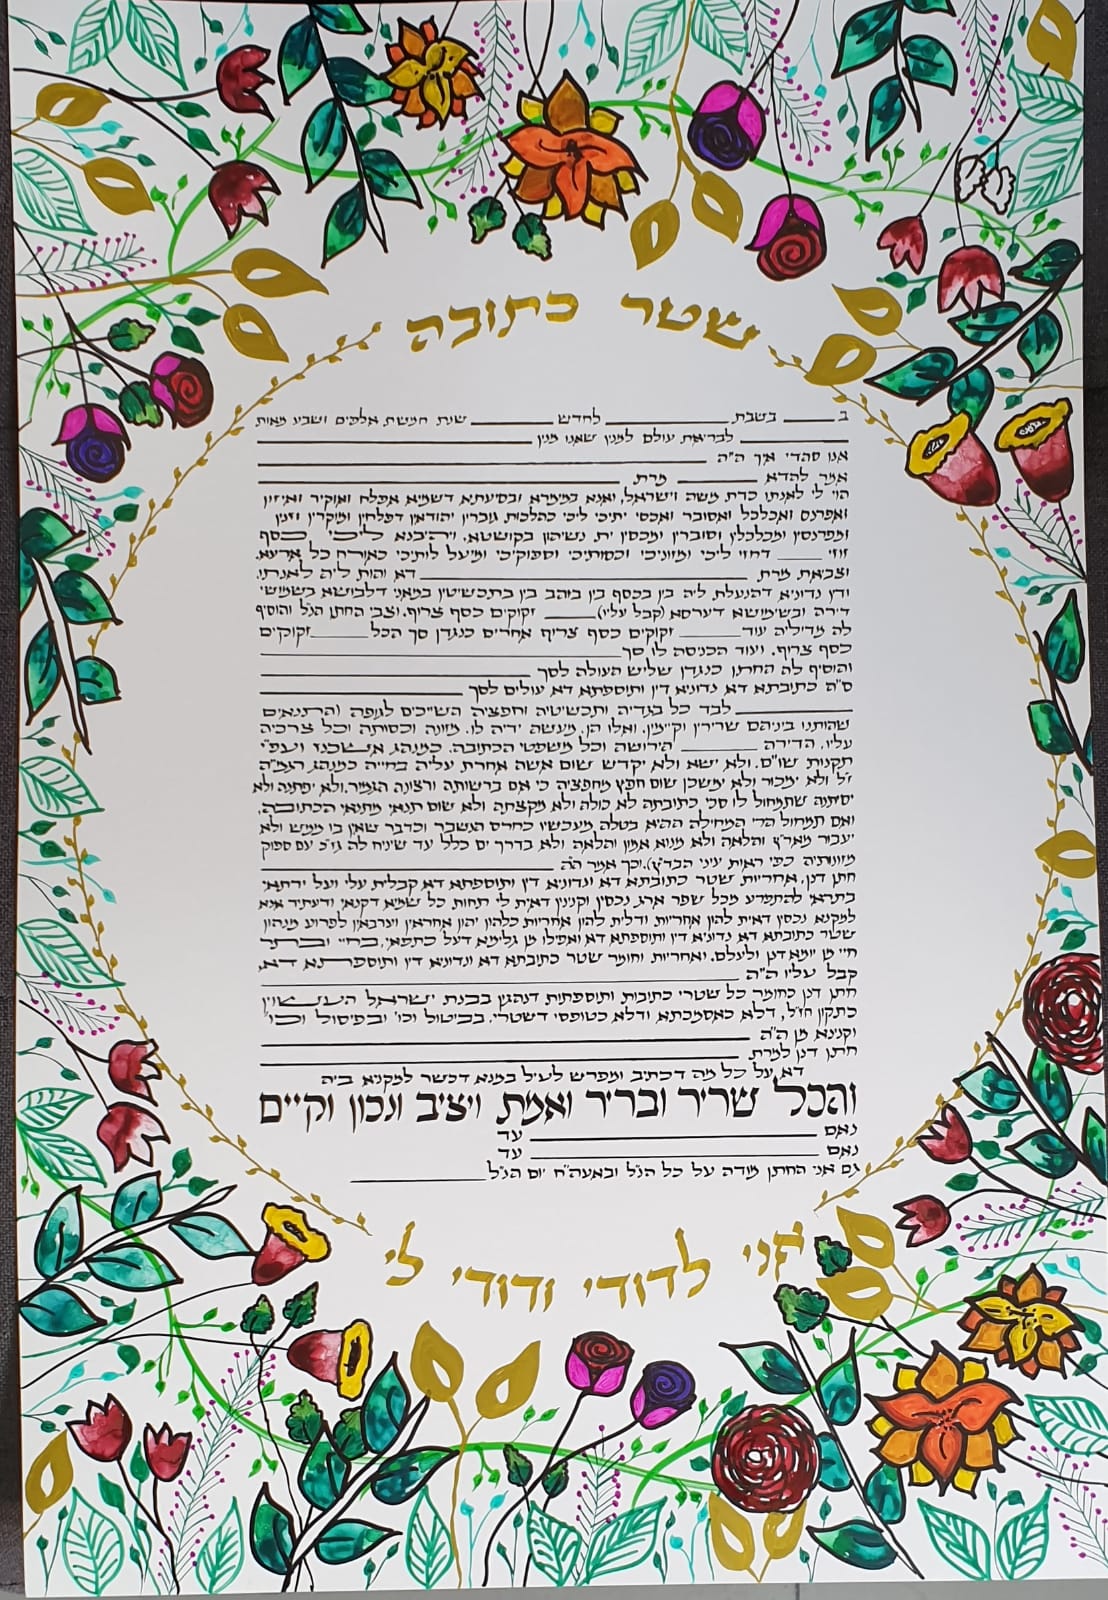 שטר כתובה
ב ____ בשבת ________ לחדש ________ שנת חמשת אלפים ושבע מאות
________ לבריאת עולם למנין שאנו מנין ________
אנו סהדי איך ה"ה ________
אמר להדא ________ מרת ________
הוי לי לאנתו כדת משה וישראל, ואנא במימרא ובסיעתא דשמיא אפלח ואוקיר ואיזון
ואפרנס ואכלכל ואסובר ואכסי יתיכי ליכי כהלכות גוברין יהודאין דפלחין ומוקרין וזנין
ומפרנסין ומכלכלין וסוברין ומכסין ית נשיהון בקושטא, ויהיבנא ליכי כסף
זוזי ____ דחזי ליכי ומזוניכי וכסותיכי וסיפוקיכי ומיעל לותיכי כאורח כל ארעא,
וצביאת מרת ________ דא והות ליה לאנתו,
ודין נדוניא דהנעלת ליה בין בכסף בין בזהב בין בתכשיטין במאני דלבושא בשמושי
דירה ובשמושא דערסא (קבל עליו) ____ זקוקים כסף צריף, וצבי החתן הנ"ל והוסיף
לה מדיליה עוד ________ זקוקים כסף צריף אחרים כנגדן סך הכל ________ זקוקים
כסף צריף. ועוד הכניסה לו סך ________
והוסיף לה החתן כנגדן שליש העולה לסך ________
ס"ה כתובתא דא נדוניא דין ותוספתא דא עולים לסך ________
________ לבד כל בגדיה ותכשיטיה וחפציה השייכים לגופה והתנאים
שהותנו ביניהם שרירין וקיימין. ואלו הן, מעשה ידיה לו. מזונה וכסותה וכל צרכיה
עליו, הדירה ________ הירושה וכל משפטי הכתובה. כמנהג אשכנז ועפ"י
תקנות שו"ם. ולא ישא ולא יקדש שום אשה אחרת עליה בחייה כמנהג רגמ"ה
ז"ל ולא ימכור ולא ימשכן שום חפץ מחפציה כי אם ברשותה ורצונה הגמור. ולא יפתנה ולא
יסיתנה שתמחול לו סכי כתובתה לא כולה ולא מקצתה ולא שום תנאי מתנאי הכתובה.
ואם תמחול הרי המחילה ההיא בטלה מעכשיו כחרס הנשבר וכדבר שאין בו ממש ולא
יעבור מאר"ץ והלאה ולא מנוא אמון והלאה ולא בדרך ים כלל עד שיניח לה גז"כ עם ספוק
מזונותיה כפי ראות עיני הבד"ץ). וכך אמר ה"ה ________
חתן דנן, אחריות שטר כתובתא דא ונדוניא דין ותוספתא דא קבלית עלי ועל ירתאי
בתראי להתפרע מכל שפר ארג נכסין וקנינין דאית לי תחות כל שמיא דקנאי ודעתיד אנא
למקנא נכסין דאית להון אחריות ודלית להון אחריות כלהון יהון אחראין וערבאין לפרוע מנהון
שטר כתובתא דא נדוניא דין ותוספתא דא ואפילו מן גלימא דעל כתפאי, בחיי ובתר
חיי מן יומא דנן ולעלם. ואחריות וחומר שטר כתובתא דא ונדוניא דין ותוספתא דא,
קבל עליו ה"ה ________
חתן דנן כחומר כל שטרי כתובות ותוספתות דנהגין בבנת ישראל העשוין
כתקון חז"ל, דלא כאסמכתא ודלא כטופסי דשטרי. בביטול וכו' ובפיסול וכו'
וקנינא מן ה"ה ________
חתן דנן למרת ________
דא על כל מה דכתיב ומפרש לעיל במנא דכשר למקניא ביה
והכל שריר ובריר ואמת ויציב ונכון וקיים
נאם ________ עד
נאם ________ עד
גם אני החתן מודה על כל הנ"ל ובאעה"ח יום הנ"ל ________
אני לדודי ודודי לי